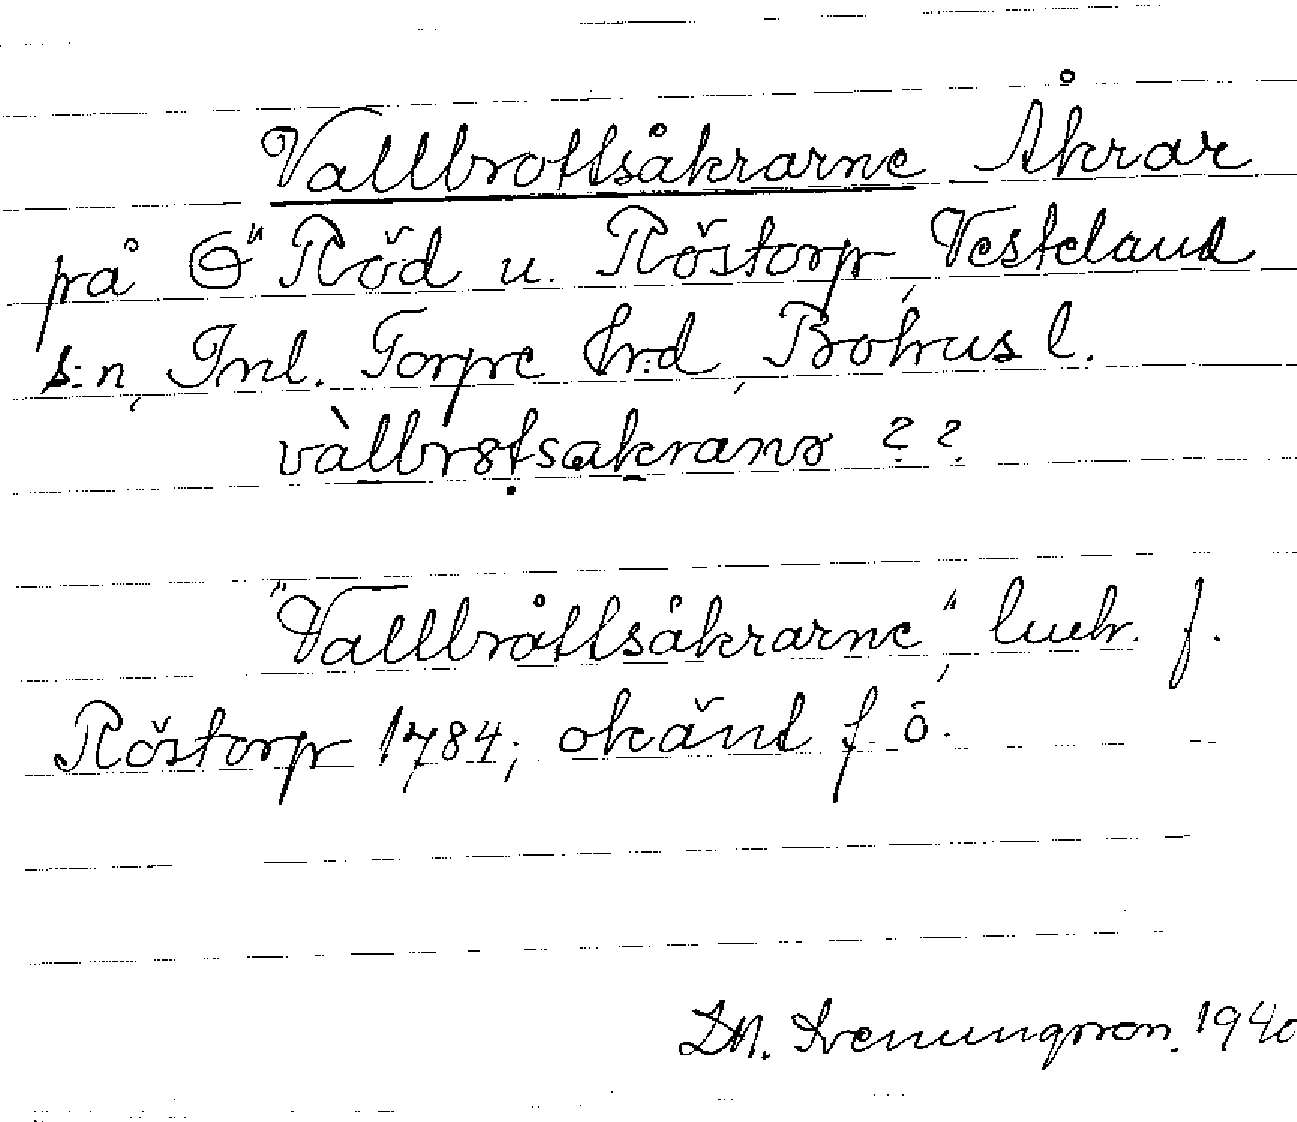 Vallbrottsåkrarne Åkrar
på Ö Röd u. Röstorp, Vesteland
s:n, Inl. Torpe hrd, Bohus l.
vàllbrɤtsakranɤ ??
"Vallbråttsåkrarne", luch. f.
Röstorp 1784; okänd f ö.
D.N. Svenungsson. 1940